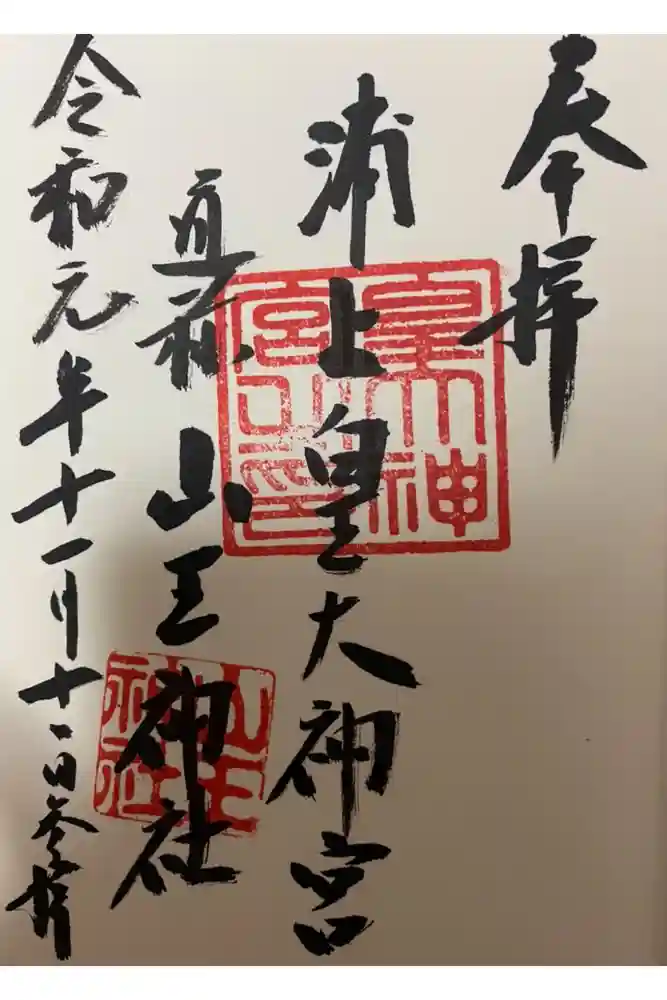 奉拝
浦上皇大神宮
通称 山王神社
令和元年十一月十一日参拝
皇大神
宮之印
山王
神社